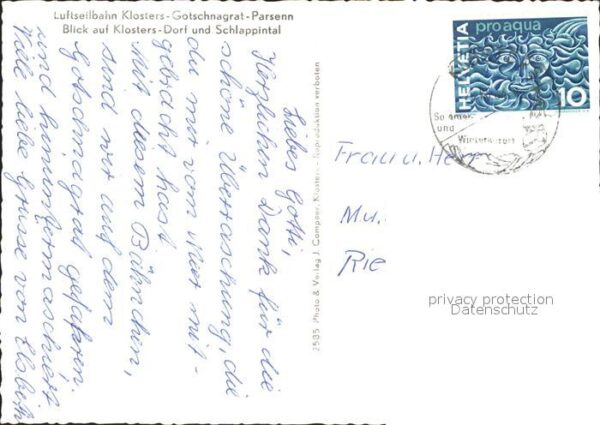 Luftseilbahn Klosters-Gotschnagrat-Parsenn
Blick auf Klosters-Dorf und Schlappintal
Liebes Gotti,
Herzlichen Dank für die
schöne Überraschung, die
du mir vom Wirt mit-
gebracht hast.
Mit diesem Bähnchen,
sind wir auf den
Gotschnagrat gefahren.
und hinuntermarschiert
Viele liebe Grüsse von Elsbeth
2585 Photo & Verlag J. Compeer, Klosters - Reproduktion verboten
HELVETIA
pro aqua
10
und
Wintersport
Frau u. Herr
M.u.
Rie
privacy protection
Datenschutz